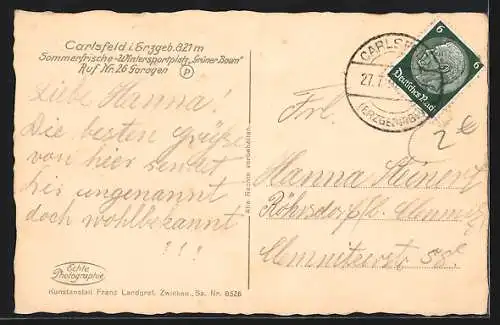 Carlsfeld i. Erzgeb. 821 m
Sommerfrische - Wintersportplatz „Grüner Baum"
Ruf Nr. 26 Garagen P
Liebe Hanna!
Die besten Grüße
von hier sendet
bis ungenannt
doch wohlbekannt
!!!
Echte
Photographie
Kunstanstalt Franz Landgraf, Zwickau, Sa. Nr. 8526
Alle Rechte vorbehalten.
CARLSF
27.7
(ERZGEBIRGE)
6 6
Deutsches Reich
2 €
Frl.
Hanna Steinert
Röhrsdorf b. Chemnitz
Chemnitzerstr